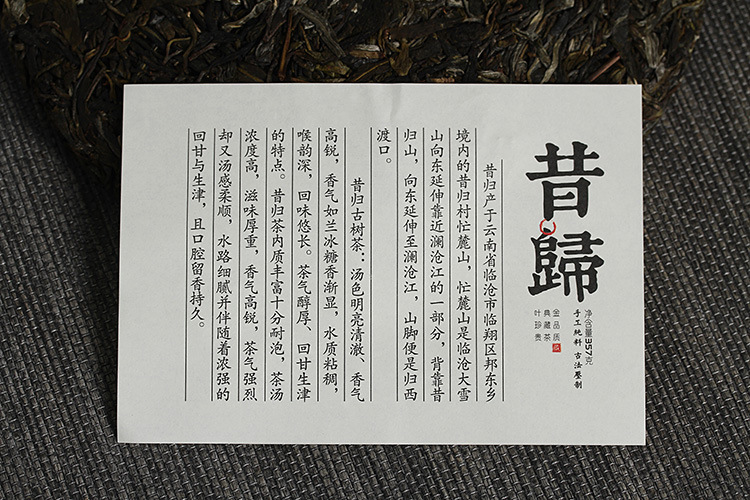 昔歸
净含量357克
手工纯料 古法压制
金品质
典藏茶
叶珍贵
昔归产于云南省临沧市临翔区邦东乡
境内的昔归村忙麓山，忙麓山是临沧大雪
山向东延伸靠近澜沧江的一部分，背靠昔
归山，向东延伸至澜沧江，山脚便是归西
渡口。
昔归古树茶：汤色明亮清澈、香气
高锐，香气如兰冰糖香渐显，水质粘稠，
喉韵深，回味悠长。茶气醇厚、回甘生津
的特点。昔归茶内质丰富十分耐泡，茶汤
浓度高，滋味厚重，香气高锐，茶气强烈
却又汤感柔顺，水路细腻并伴随着浓强的
回甘与生津，且口腔留香持久。